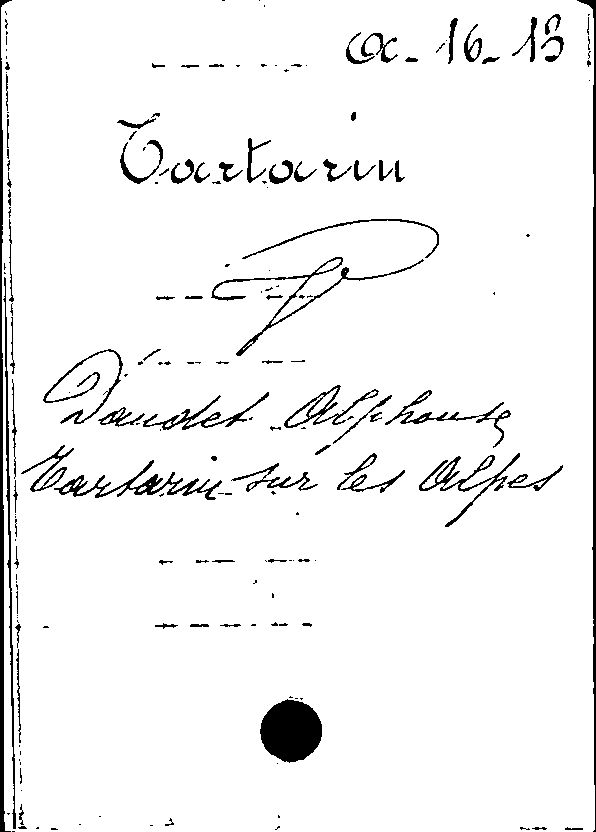 a-16-13
Tartarin
Daudet Alphonse
Tartarin sur les Alpes